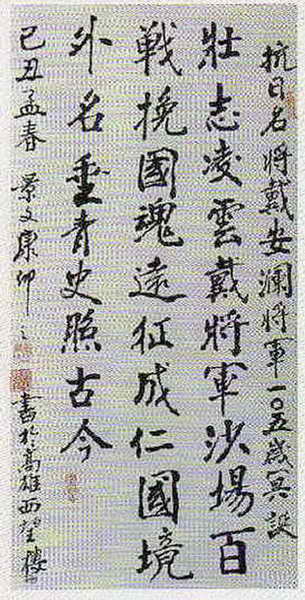 抗日名將戴安瀾將軍一〇五歲冥誕
壯志凌雲戴將軍沙場百
戰挽國魂遠征成仁國境
外名垂青史照古今
己丑孟春 景文康仰之
書於高雄西望樓